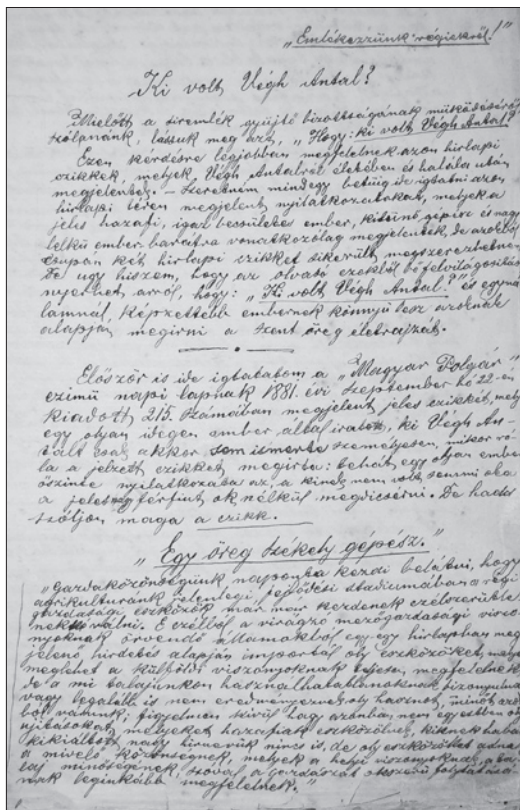 „Emlékezzünk régiekről!"
Ki volt Végh Antal?
Mielőtt a siremlék gyüjtő bizottságának működéséről
szólnánk, lássuk meg azt, „Hogy: ki volt Végh Antal?"
Ezen kérdésre legjobban megfelelnek azon hirlapi
czikkek, melyek, Végh Antalról életében és halála után
megjelentek. – Szeretném mindegy betüig ide igtatni azon
hirlapi téren megjelent nyilatkozatokat, melyek a
jeles hazafi, igaz becsületes ember, kitünő gépész és nagy
lelkü ember barátra vonatkozólag megjelentek, de azokból
csupán két hirlapi czikket sikerült megszerezhetnem
De ugy hiszem, hogy az olvasó ezekből bő felvilágositást
nyerhet arról, hogy: „Ki volt Végh Antal?" és egy ná-
lamnál, képzettebb embernek könnyü lesz azoknak
alapján megirni a szent öreg életrajzát.
Először is ide igtatatom a „Magyar Polgár"
czimü napi lapnak 1881. évi szeptember hó 22-én
kiadott 215. számában megjelent jeles czikkét, mely
egy olyan idegen ember által iratott, ki Végh An-
talt csak akkor sem ismerte személyesen, mikor ró-
la a jelzett czikket megirta: tehát egy olyan ember
őszinte nyilatkozata az, a kinek nem volt semmi oka
a jeles férfiut ok nélkül megdicsérni. De hadd
szóljon maga a czikk.
„Egy öreg székely gépész."
„Gazdaközönségünk naponta kezdi belátni, hogy
agrikulturánk jelenlegi, fejlődési stadiumában a régi
gazdasági eszközök már nem kezdenek czélszerüek-
nek válni. E czélból a virágzó mezőgazdasági viszo-
nyoknak örvendő államokból egy-egy hirlapban meg
jelenő hirdetés alapján importál oly eszközöket, melyek
meglehet a külföldi viszonyoknak teljesen megfelelnek
de a mi talajunkon használhatatlanoknak bizonyulnak
vagy legalább is nem eredményeznek oly hasznot, minőt azok-
ból várunk; figyelmen kivül hagy azonban nem egyestben oly
ujitásokat, melyeket hazafiak eszközölnek, kiknek habár
kikiáltott nagy hirnevük nincs is, de oly eszközöket adnak
a mivelő közönségnek, melyek a helyi viszonyoknak, a ta-
laj minőségének, szóval a gazdászat okszerü folytatásá-
nak leginkább megfelelnek."